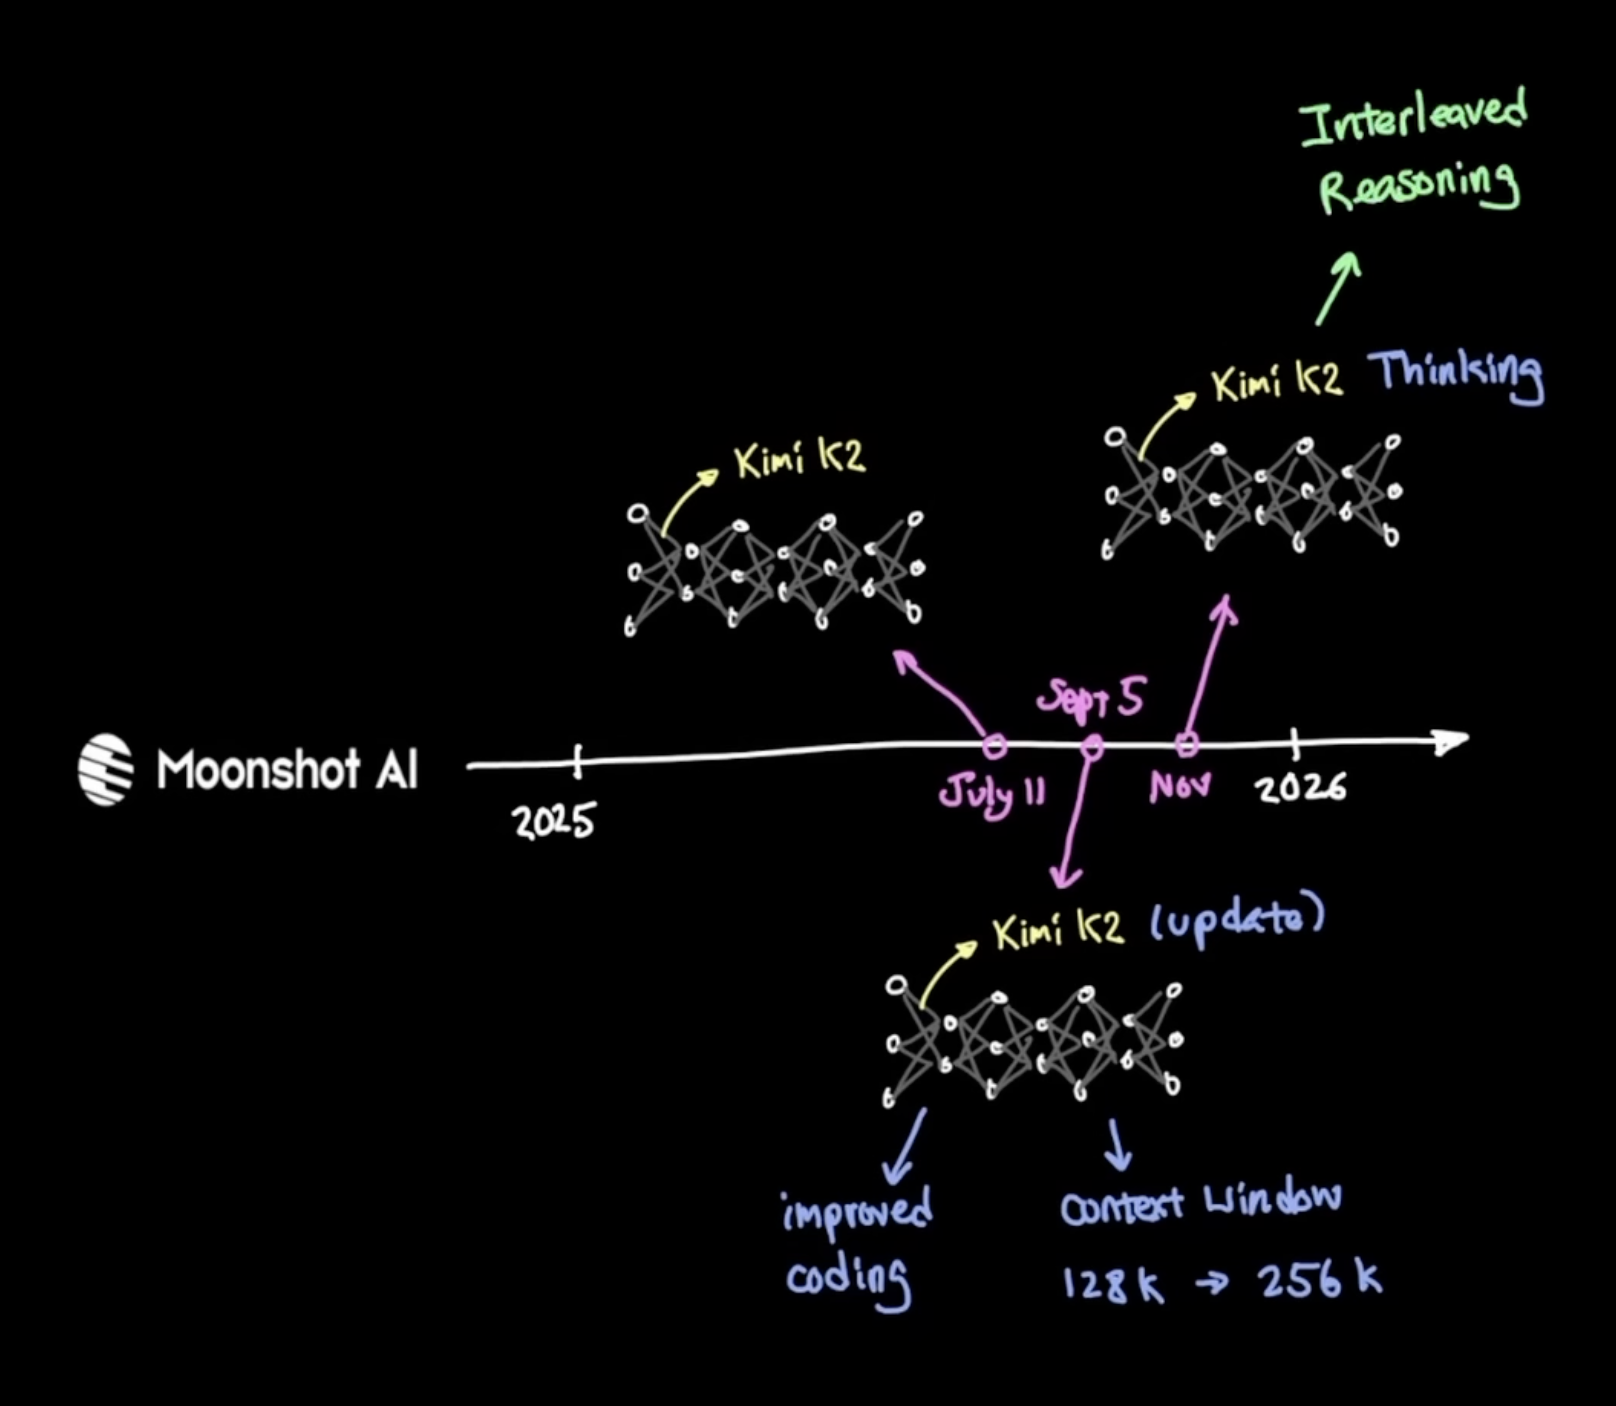 Interleaved
Reasoning
Kimi K2 Thinking
Kimi K2
Sept 5
Moonshot AI
2025
July 11
Nov
2026
Kimi K2 (update)
improved
coding
context window
128k → 256k